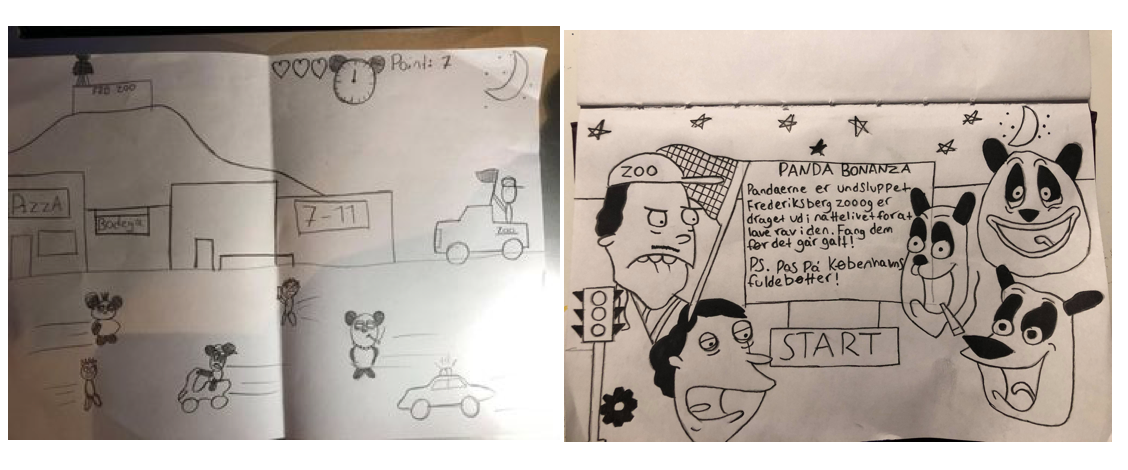 FRB ZOO
Point: 7
PIZZA
Bodega
7-11
ZOO
ZOO
PANDA BONANZA
Pandaerne er undsluppet
Frederiksberg zooog er
draget ud i nattelivet for at
lave rav i den. Fang dem
før det går galt!
PS. Pas På Københavns
fuldebøtter!
START